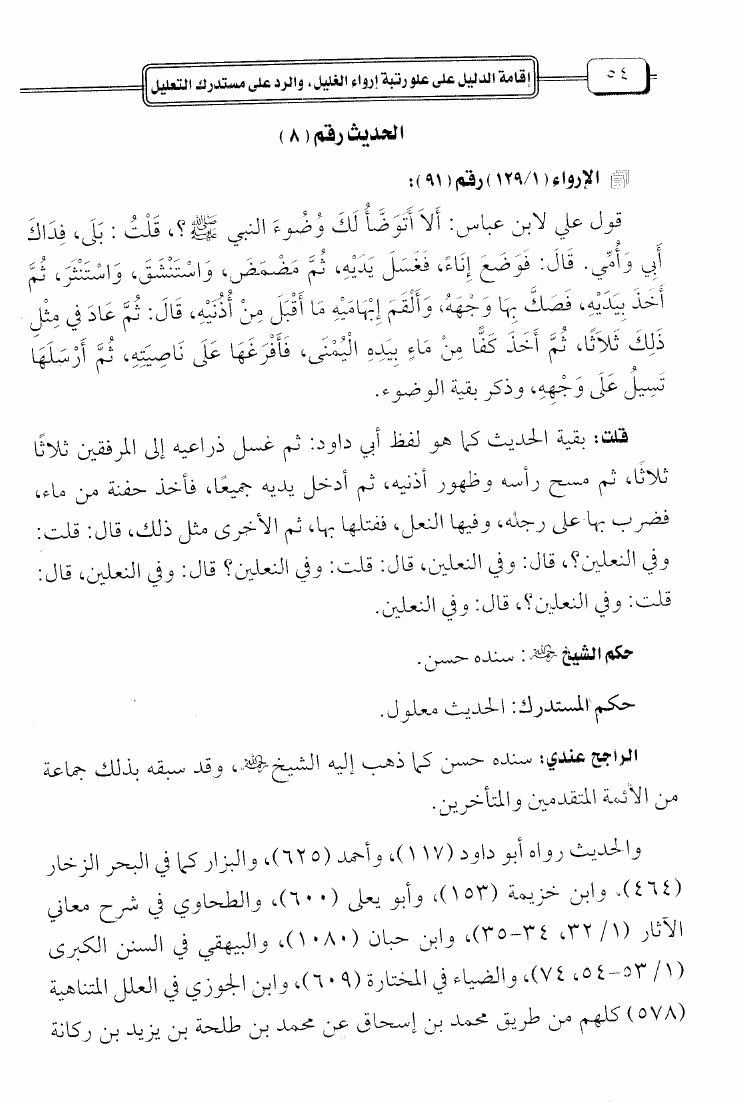 ٥٤
إقامة الدليل على علو رتبة إرواء الغليل، والرد على مستدرك التعليل
الحديث رقم (٨)
الإرواء (١/ ١٢٩) رقم (٩١):
قول علي لابن عباس: أَلاَ أَتَوَضَّأُ لَكَ وُضُوءَ النبي ﷺ؟، قَلْتُ: بَلَى، فِدَاكَ
أَبِي وَأُمِّي. قَالَ: فَوَضَعَ إِنَاءً، فَغَسَلَ يَدَيْهِ، ثُمَّ مَضْمَضَ، وَاسْتَنْشَقَ، وَاسْتَنْثَرَ، ثُمَّ
أَخَذَ بِيَدَيْهِ، فَصَكَّ بِهَا وَجْهَهُ، وَأَلْقَمَ إِبْهَامَيْهِ مَا أَقْبَلَ مِنْ أُذُنَيْهِ، قَالَ: ثُمَّ عَادَ فِي مِثْلِ
ذَلِكَ ثَلاَثًا، ثُمَّ أَخَذَ كَفًّا مِنْ مَاءٍ بِيَدِهِ الْيُمْنَى، فَأَفْرَغَهَا عَلَى نَاصِيَتِهِ، ثُمَّ أَرْسَلَهَا
تَسِيلُ عَلَى وَجْهِهِ، وذكر بقية الوضوء.
قلت: بقية الحديث كما هو لفظ أبي داود: ثم غسل ذراعيه إلى المرفقين ثلاثًا
ثلاثًا، ثم مسح رأسه وظهور أذنيه، ثم أدخل يديه جميعًا، فأخذ حفنة من ماء،
فضرب بها على رجله، وفيها النعل، ففتلها بها، ثم الأخرى مثل ذلك، قال: قلت:
وفي النعلين؟، قال: وفي النعلين، قال: قلت: وفي النعلين؟ قال: وفي النعلين، قال:
قلت: وفي النعلين؟، قال: وفي النعلين.
حكم الشيخ رحمه الله: سنده حسن.
حكم المستدرك: الحديث معلول.
الراجح عندي: سنده حسن كما ذهب إليه الشيخ رحمه الله، وقد سبقه بذلك جماعة
من الأئمة المتقدمين والمتأخرين.
والحديث رواه أبو داود (١١٧)، وأحمد (٦٢٥)، والبزار كما في البحر الزخار
(٤٦٤). وابن خزيمة (١٥٣)، وأبو يعلى (٦٠٠)، والطحاوي في شرح معاني
الآثار (١/ ٣٢، ٣٤-٣٥)، وابن حبان (١٠٨٠)، والبيهقي في السنن الكبرى
(١/ ٥٣-٥٤، ٧٤)، والضياء في المختارة (٦٠٩)، وابن الجوزي في العلل المتناهية
(٥٧٨) كلهم من طريق محمد بن إسحاق عن محمد بن طلحة بن يزيد بن ركانة